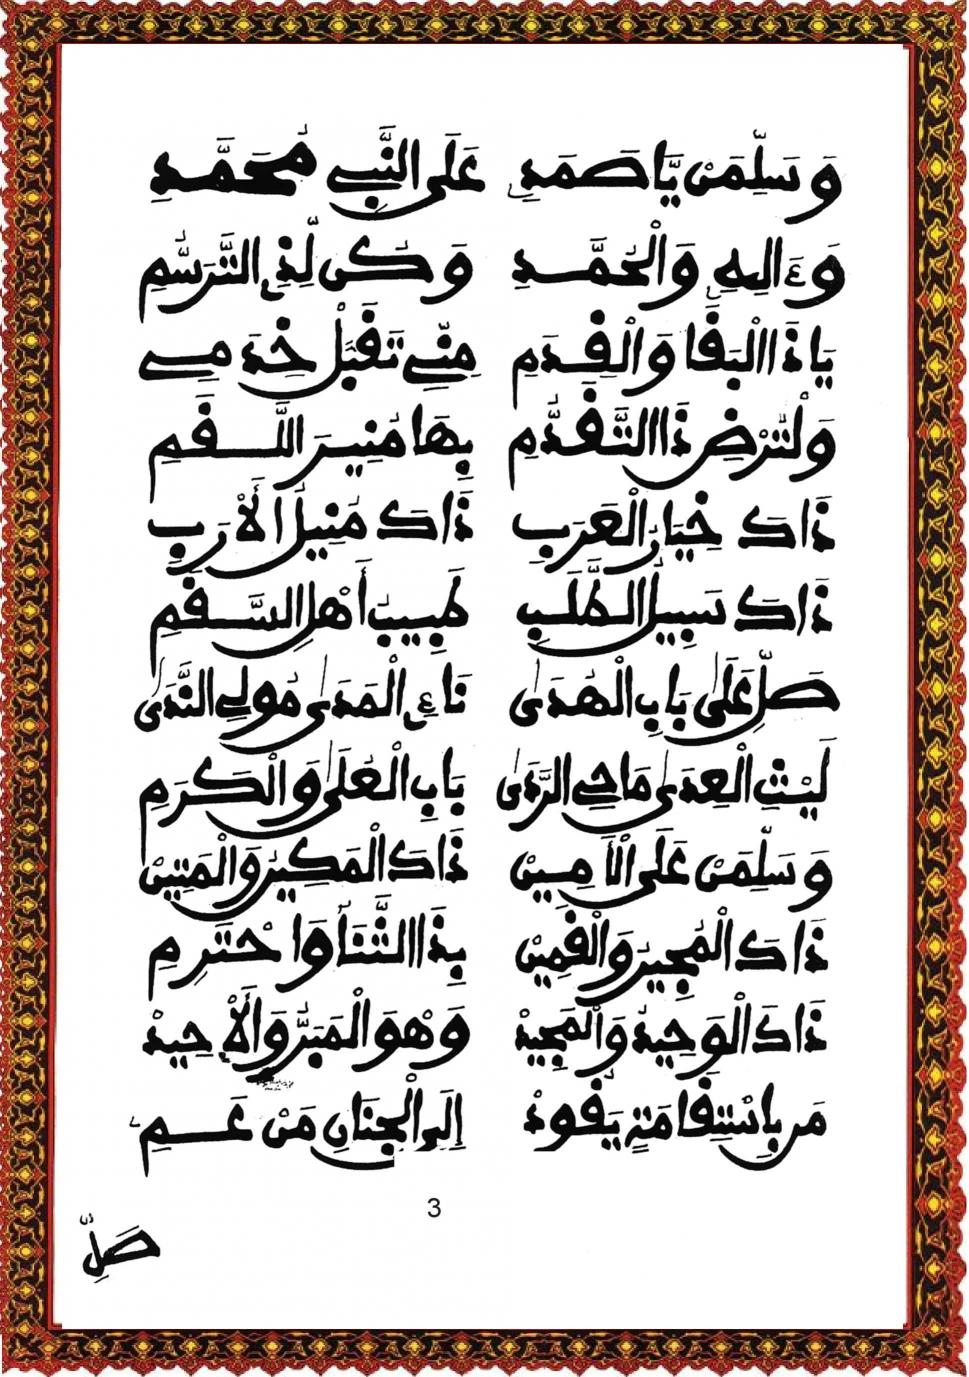 وَسَلِّمَنْ يَا صَمَدِ عَلَى النَّبِي مُحَمَّدِ
وَءَالِهِ وَالْحُمَّدِ وَكُن لِّذِي التَّرَسُّمِ
يَا ذَا الْبَقَا وَالْقِدَمِ مِنِّي تَقَبَّلْ خِدَمِي
وَلْتُرْضِ ذَا التَّقَدُّمِ بِهَا مُنِيرَ اللَّقَمِ
ذَاكَ خِيَارُ الْعَرَبِ ذَاكَ مُنِيلُ الْأَرَبِ
ذَاكَ سَبِيلُ الطَّلَبِ طَبِيبُ أَهْلِ السَّقَمِ
صَلِّ عَلَى بَابِ الْهُدَى نَاءِي الْمَدَى مُولِي النَّدَى
لَيْثِ الْعِدَى مَاحِي الرَّدَى بَابِ الْعُلَى وَالْكَرَمِ
وَسَلِّمَنْ عَلَى الْأَمِينْ ذَاكَ الْمَكِينُ وَالْمَتِينْ
ذَاكَ الْمُجِيرُ وَالْقَمِينْ بِذَا الثَّنَا وَاحْتَرِمِ
ذَاكَ الْوَحِيدُ وَالْمَجِيدْ وَهْوَ الْمَبَرُّ وَالْأَحِيدْ
مَن بِاسْتِقَامَةٍ يَقُودْ إِلَى الْجِنَانِ مَنْ عَمِ
3
صَلِّ